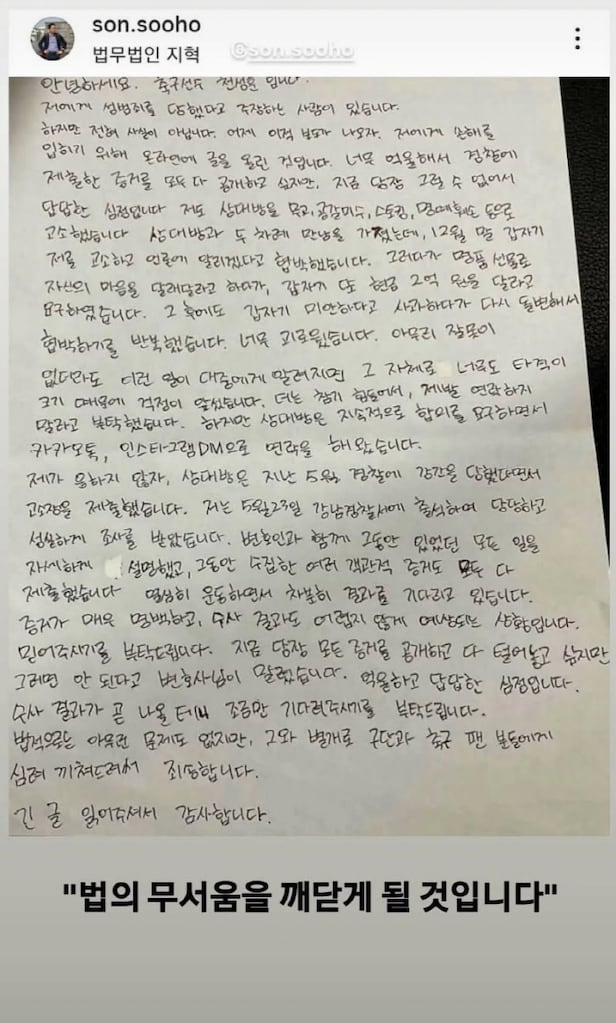 son.sooho
법무법인 지혁
@son.sooho
안녕하세요. 축구선수 천성훈입니다.
저에게 성범죄를 당했다고 주장하는 사람이 있습니다.
하지만 전혀 사실이 아닙니다. 어제 이적 보도가 나오자, 저에게 손해를
입히기 위해 온라인에 글을 올린 것입니다. 너무 억울해서 경찰에
제출한 증거를 모두 다 공개하고 싶지만, 지금 당장 그럴 수 없어서
답답한 심정입니다 저도 상대방을 무고, 공갈미수, 스토킹, 명예훼손 등으로
고소했습니다 상대방과 두 차례 만남을 가졌는데, 12월 말 갑자기
저를 고소하고 언론에 알리겠다고 협박했습니다. 그러다가 명품 선물로
자신의 마음을 달래달라고 하다가, 갑자기 또 현금 2억 원을 달라고
요구하였습니다. 그 후에도 갑자기 미안하다고 사과하다가 다시 돌변해서
협박하기를 반복했습니다. 너무 괴로웠습니다. 아무리 잘못이
없더라도 이런 일이 대중에게 알려지면 그 자체로 너무도 타격이
크기 때문에 걱정이 앞섰습니다. 더는 참기 힘들어서, 제발 연락하지
말라고 부탁했습니다. 하지만 상대방은 지속적으로 합의를 요구하면서
카카오톡, 인스타그램DM으로 연락을 해왔습니다.
제가 응하지 않자, 상대방은 지난 5월, 경찰에 강간을 당했다면서
고소장을 제출했습니다. 저는 5월23일 강남경찰서에 출석하여 당당하고
성실하게 조사를 받았습니다. 변호인과 함께 그동안 있었던 모든 일을
자세하게 설명했고, 그동안 수집한 여러 객관적 증거도 모두 다
제출했습니다 열심히 운동하면서 차분히 결과를 기다리고 있습니다.
증거가 매우 명백하고, 수사 결과도 어렵지 않게 예상되는 상황입니다.
믿어주시기를 부탁드립니다. 지금 당장 모든 증거를 공개하고 다 털어놓고 싶지만
그러면 안 된다고 변호사님이 말렸습니다. 억울하고 답답한 심정입니다.
수사 결과가 곧 나올 테니 조금만 기다려주시기를 부탁드립니다.
법적으로는 아무런 문제도 없지만, 그와 별개로 구단과 축구 팬 분들에게
심려 끼쳐드려서 죄송합니다.
긴 글 읽어주셔서 감사합니다.
"법의 무서움을 깨닫게 될 것입니다"